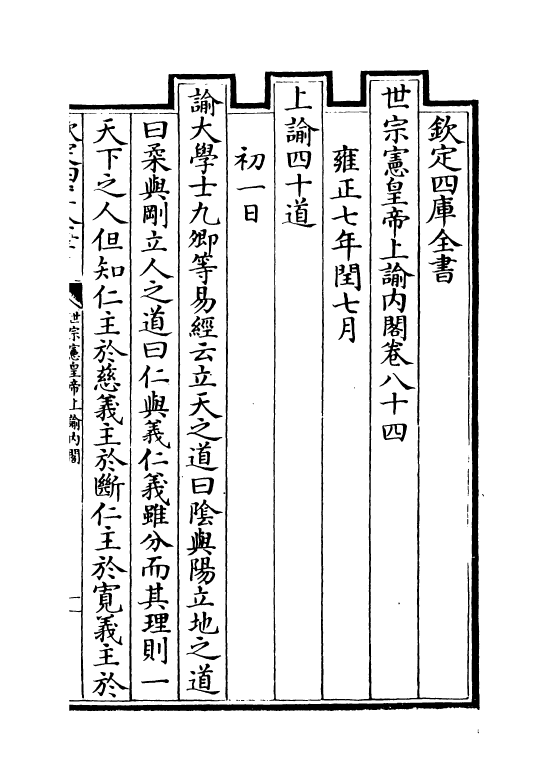 欽定四庫全書
世宗憲皇帝上諭内閣卷八十四
雍正七年閏七月
上諭四十道
初一日
諭大學士九卿等易經云立天之道曰陰與陽立地之道
曰柔與剛立人之道曰仁與義仁義雖分而其理則一
天下之人但知仁主於慈義主於斷仁主於寛義主於
世宗憲皇帝上諭内閣
一